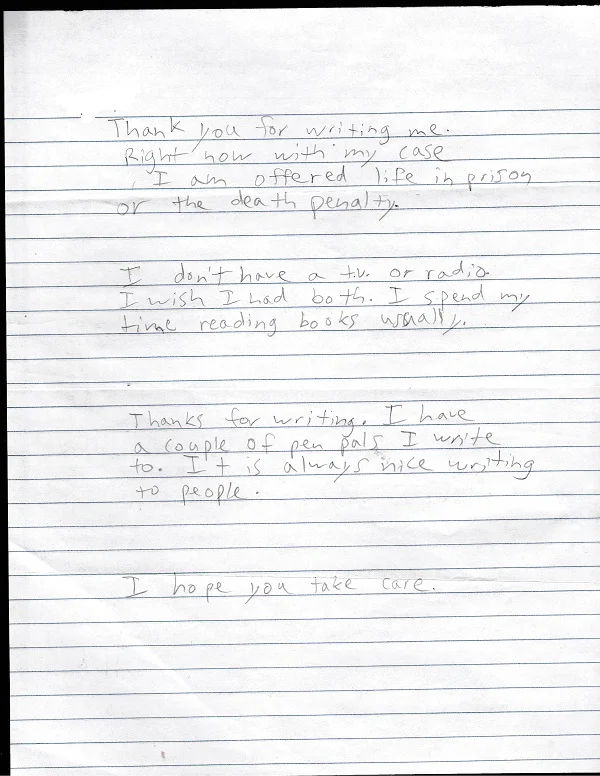 Thank you for writing me.
Right now with my case
I am offered life in prison
or the death penalty.
I don't have a t.v. or radio.
I wish I had both. I spend my
time reading books usually.
Thanks for writing. I have
a couple of pen pals I write
to. It is always nice writing
to people.
I hope you take care.